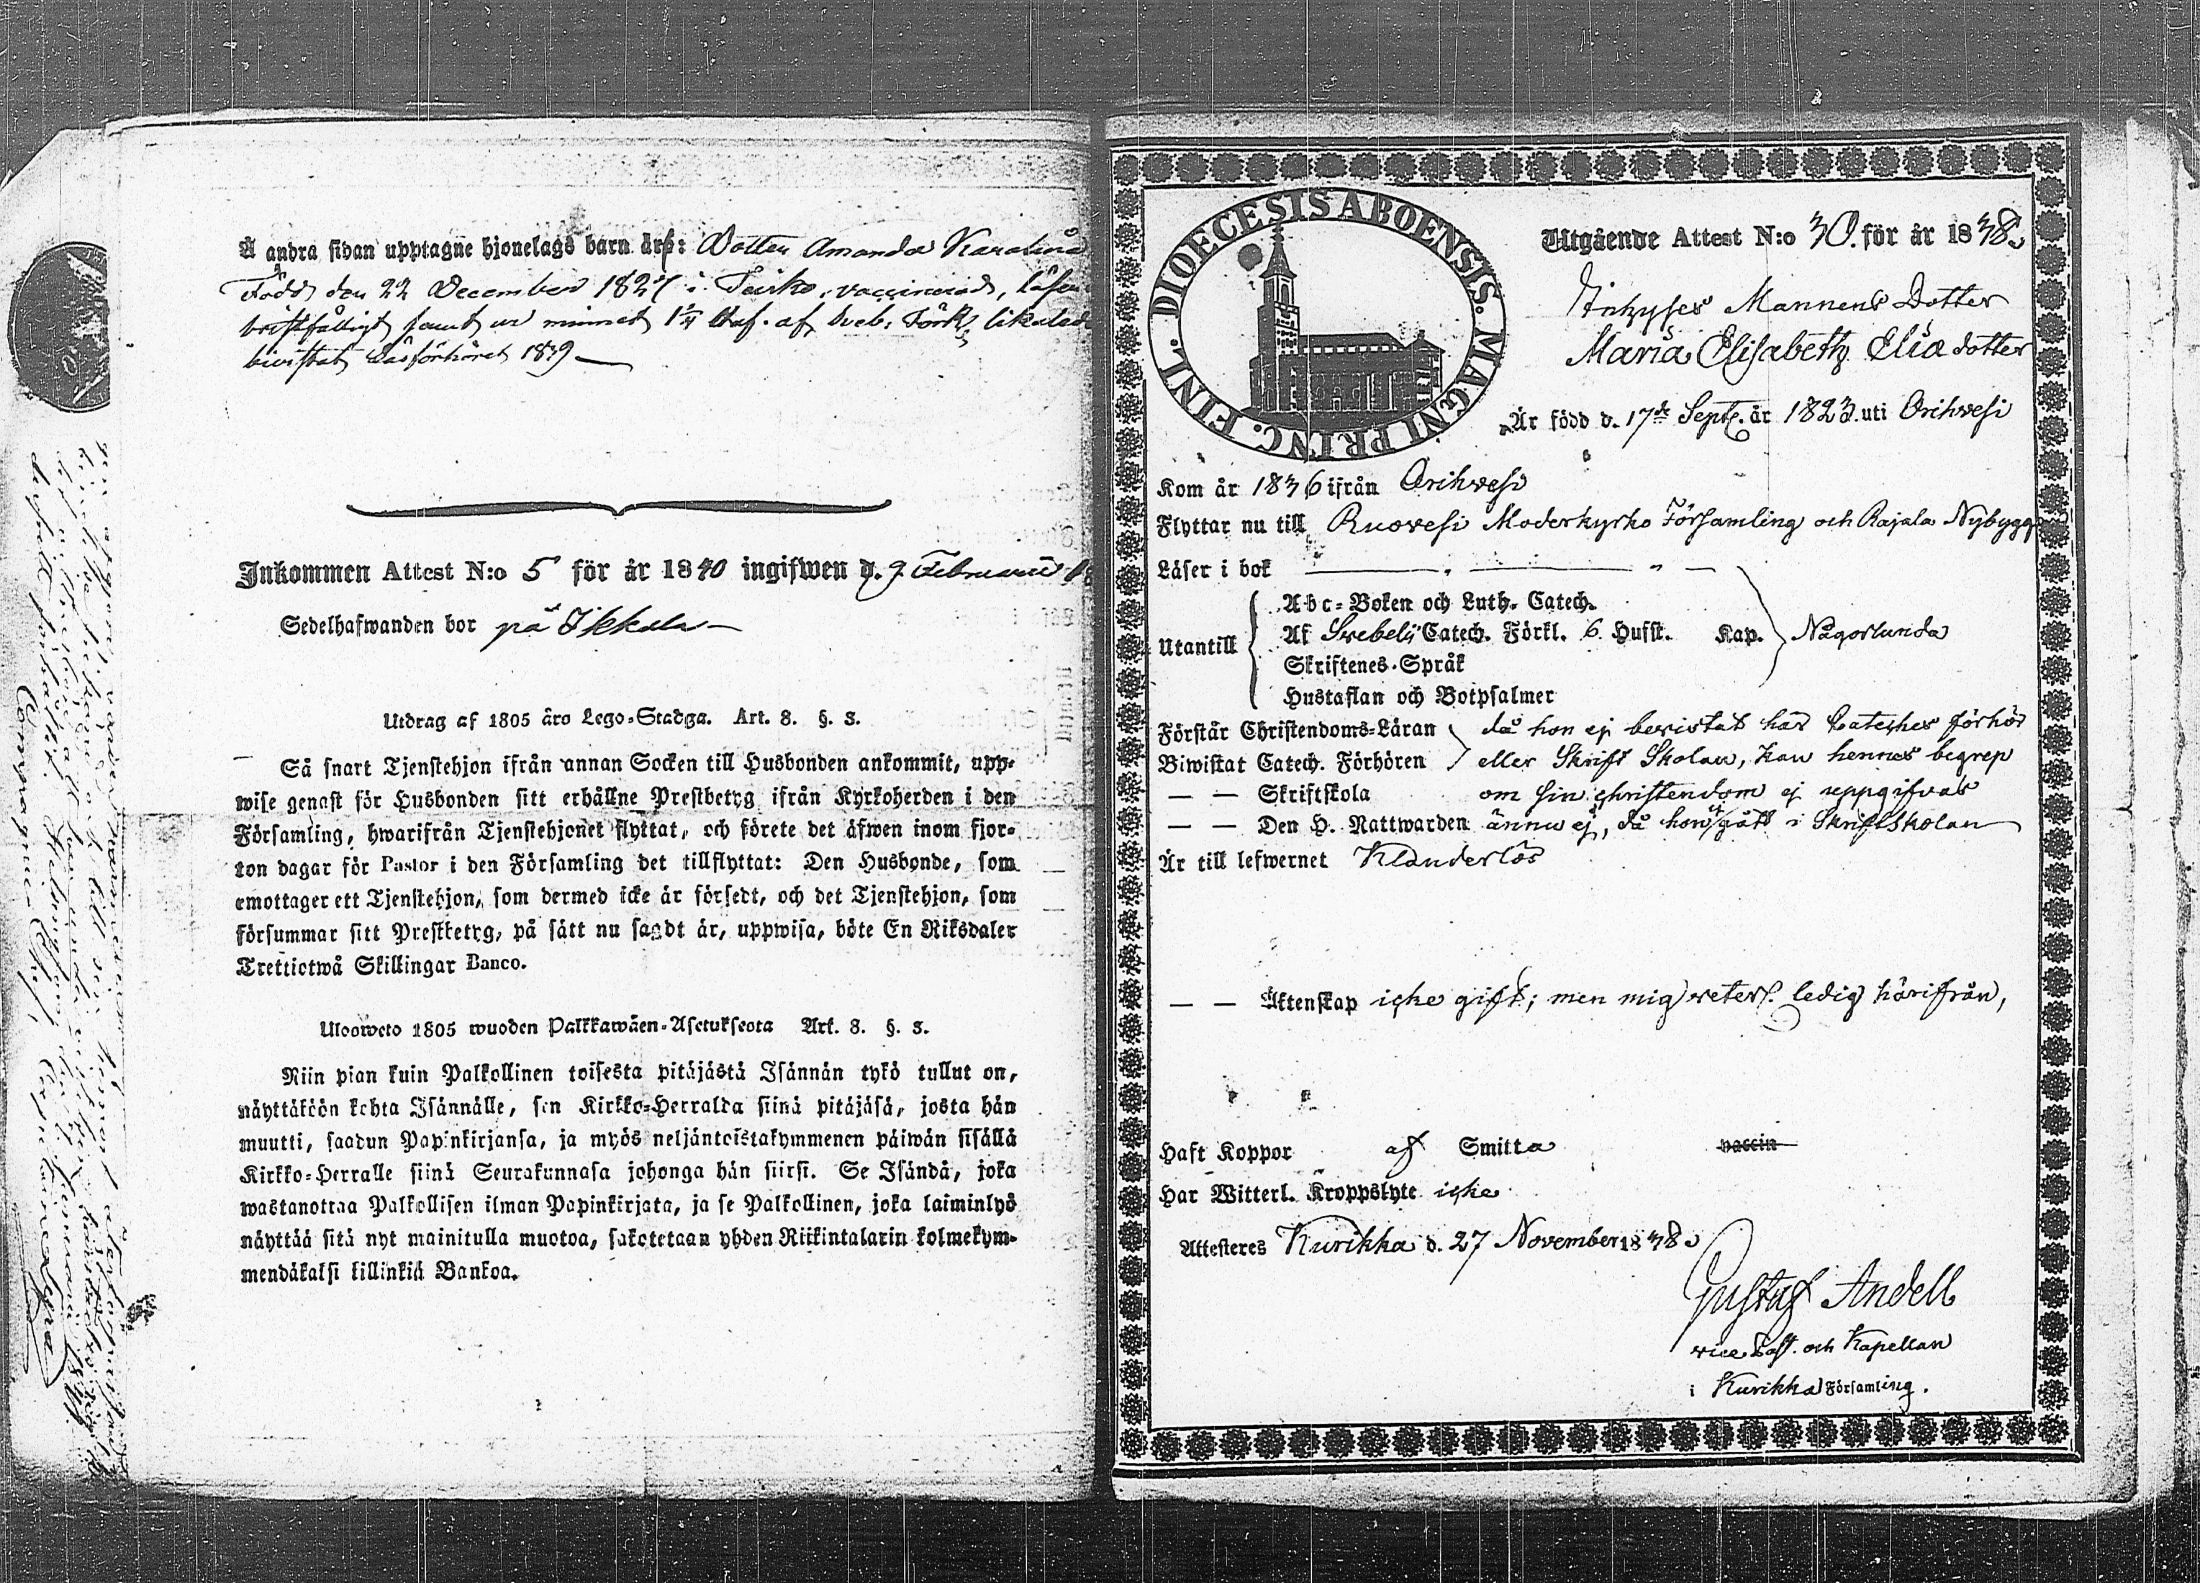 Å andra sidan upptagne hjonelags barn äro: Dotter Amanda Karolina
Född den 22 December 1827 i vaccinerad,
samt ur minnet af Sveb. Förkl. likaledes
bivistat Läsförhöret 1839
Inkommen Attest N:o 5 för år 1840 ingifwen d. 9 Februarii
Sedelhafwanden bor på Ikkala
Utdrag af 1805 års Lego-Stadga. Art. 8. §. 3.
Så snart Tjenstehjon ifrån annan Socken till Husbonden ankommit, upp-
wise genast för Husbonden sitt erhållne Prestbetyg ifrån Kyrkoherden i den
Församling, hwarifrån Tjenstehjonet flyttat, och förete det äfwen inom fjor-
ton dagar för Pastor i den Församling det tillflyttat: Den Husbonde, som
emottager ett Tjenstehjon, som dermed icke är försedt, och det Tjenstehjon, som
försummar sitt Prestbetyg, på sätt nu sagdt är, uppwisa, böte En Riksdaler
Trettiotwå Skillingar Banco.
Ulosweto 1805 wuoden Palkkawäen-Asetuksesta Art. 8. §. 3.
Niin pian kuin Palkollinen toisesta pitäjästä Isännän tykö tullut on,
näyttäköön kohta Isännälle, sen Kirkko-Herralda siinä pitäjäsä, josta hän
muutti, saadun Papinkirjansa, ja myös neljäntoistakymmenen päiwän sisällä
Kirkko-Herralle siinä Seurakunnasa johonga hän siirsi. Se Isändä, joka
wastanottaa Palkollisen ilman Papinkirjata, ja se Palkollinen, joka laiminlyö
näyttää sitä nyt mainitulla muotoa, sakotetaan yhden Riikintalarin kolmekym-
mendäkaksi killinkiä Bankoa.
DIOECESIS ABOENSIS. MAGNI PRINC. FINL.
Utgående Attest N:o 30. för år 1838.
Inhyses Mannens Dotter
Maria Elisabeth Elia dotter
Är född d. 17de Sept. år 1823. uti Orihvesi
Kom år 1836 ifrån Orihvesi
Flyttar nu till Ruovesi Moderkyrko Församling och Rajala Nybygge
Läser i bok
Utantill
Abc-Boken och Luth. Catech.
Af Svebelii Catech. Förkl. 6. Hufst. Kap. Någorlunda
Skriftenes-Språk
Hustaflan och Botpsalmer
Förstår Christendoms-Läran då hon ej bevistat här Cateches förhör
Biwistat Catech. Förhören eller Skrift Skolan, kan hennes begrep
— — Skriftskola om sin christendom ej uppgifvas
— — Den H. Nattwarden ännu ej, då hon ej gått i Skriftskolan
Är till lefwernet Klanderlös
— — Äktenskap icke gift; men mig veterl. ledig härifrån,
Haft Koppor af Smitta vaccin
Har Witterl. Kroppslyte icke
Attesteres Kurikka d. 27 November 1838.
Gustaf Andell
vice Past. och Kapellan
i Kurikka Församling.